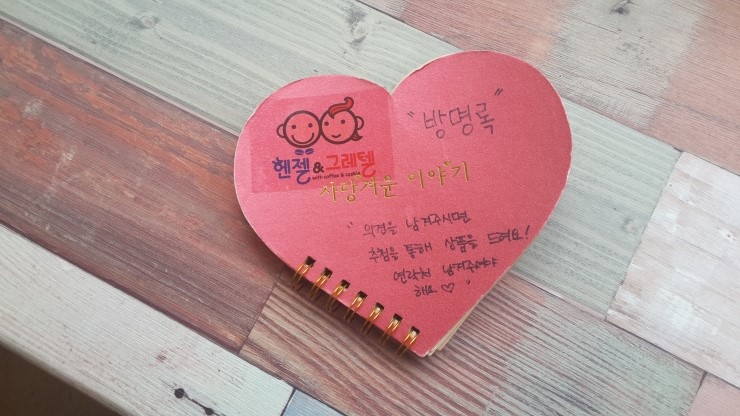 "방명록"
헨젤&그레텔
with coffee & cookie
사랑겨운 이야기
" 의견을 남겨주시면
추첨을 통해 상품을 드려요!
연락처 남겨주셔야
해요♡ "